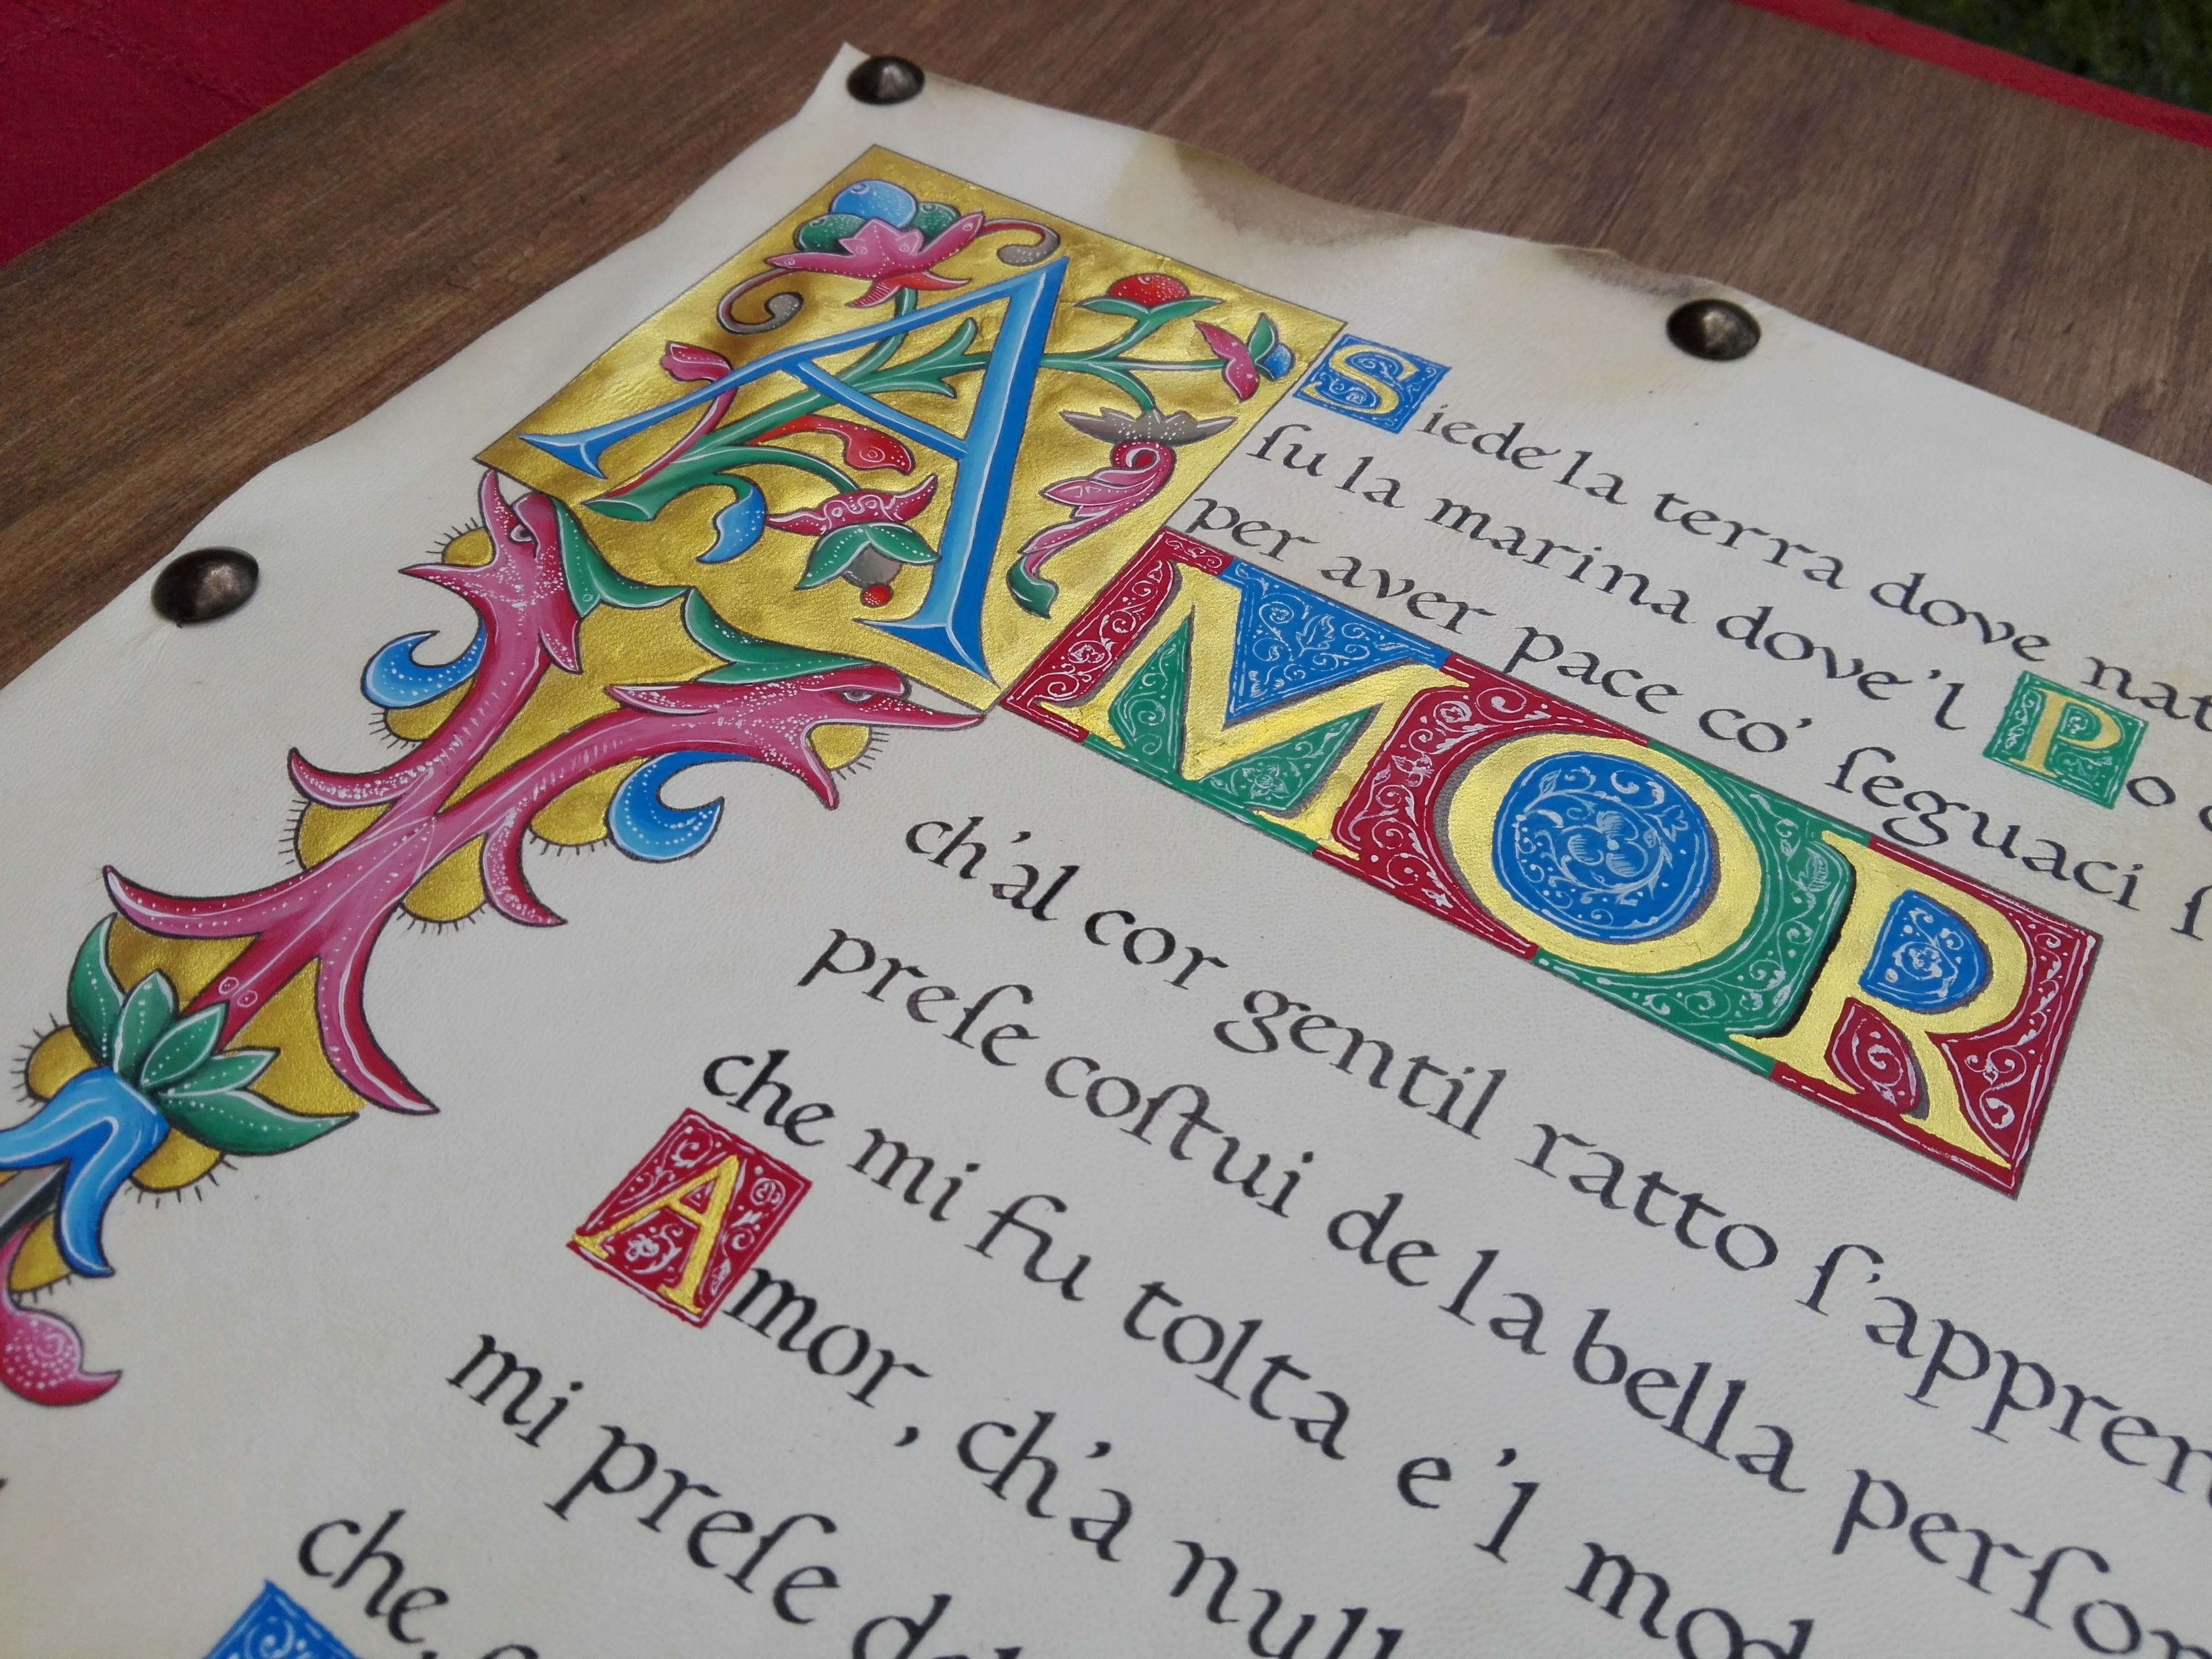 Siede la terra dove nat
ſu la marina dove 'l Po
per aver pace co' ſeguaci ſ
AMOR
ch'al cor gentil ratto ſ'appren
preſe coſtui de la bella perſon
che mi fu tolta e 'l mod
Amor, ch'a null
mi preſe del
che,